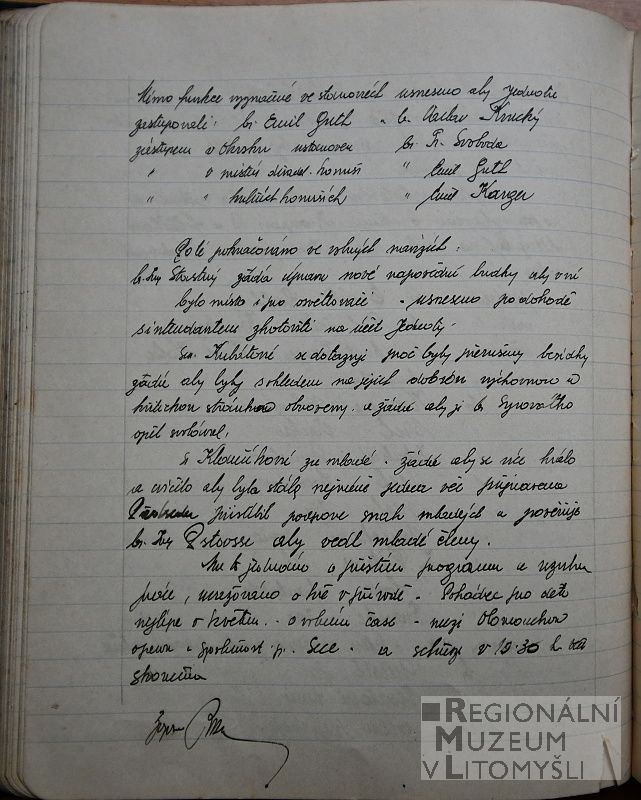 Mimo funkce vyznačené ve stanovách usneseno aby Jednotu
zastupovali: br. Emil Guth a br. Václav Krucký
zástupcem v Okrsku ustanoven br. Fr. Svoboda
" v místní divad. komisi " Emil Guth
" " kulturních komisích " Emil Karger
Poté pokračováno ve volných návrzích:
br. Ing Stastný žádá úpravu nové napovědní budky aby v ní
bylo místo i pro osvětlovače - usneseno po dohodě
s intendantem zhotoviti na účet Jednoty.
Ses. Kubátová se dotazuje proč byly přerušeny besídky
žádá aby byly s ohledem na jejich dobrou výchovnou a
kritickou stránku obnoveny. a žádá aby je br. Syrovátko
opět svolával.
S. Kloučková za mladé. žádá aby se více hrálo
a cvičilo aby byla stále nejméně jedna věc připravena
Předseda přislíbil podporu snah mladých a pověřuje
br. Ing aby vedl mladé členy.
Na to jednáno o příštím programu a
práce, uvažováno o hře v přírodě. Pohádce pro děti
nejlépe v květnu. - o volném čase - mezi Olomouckou
operou a společnost p. - a schůze v 19.30 h.
skončena
REGIONÁLNÍ
MUZEUM
V LITOMYŠLI